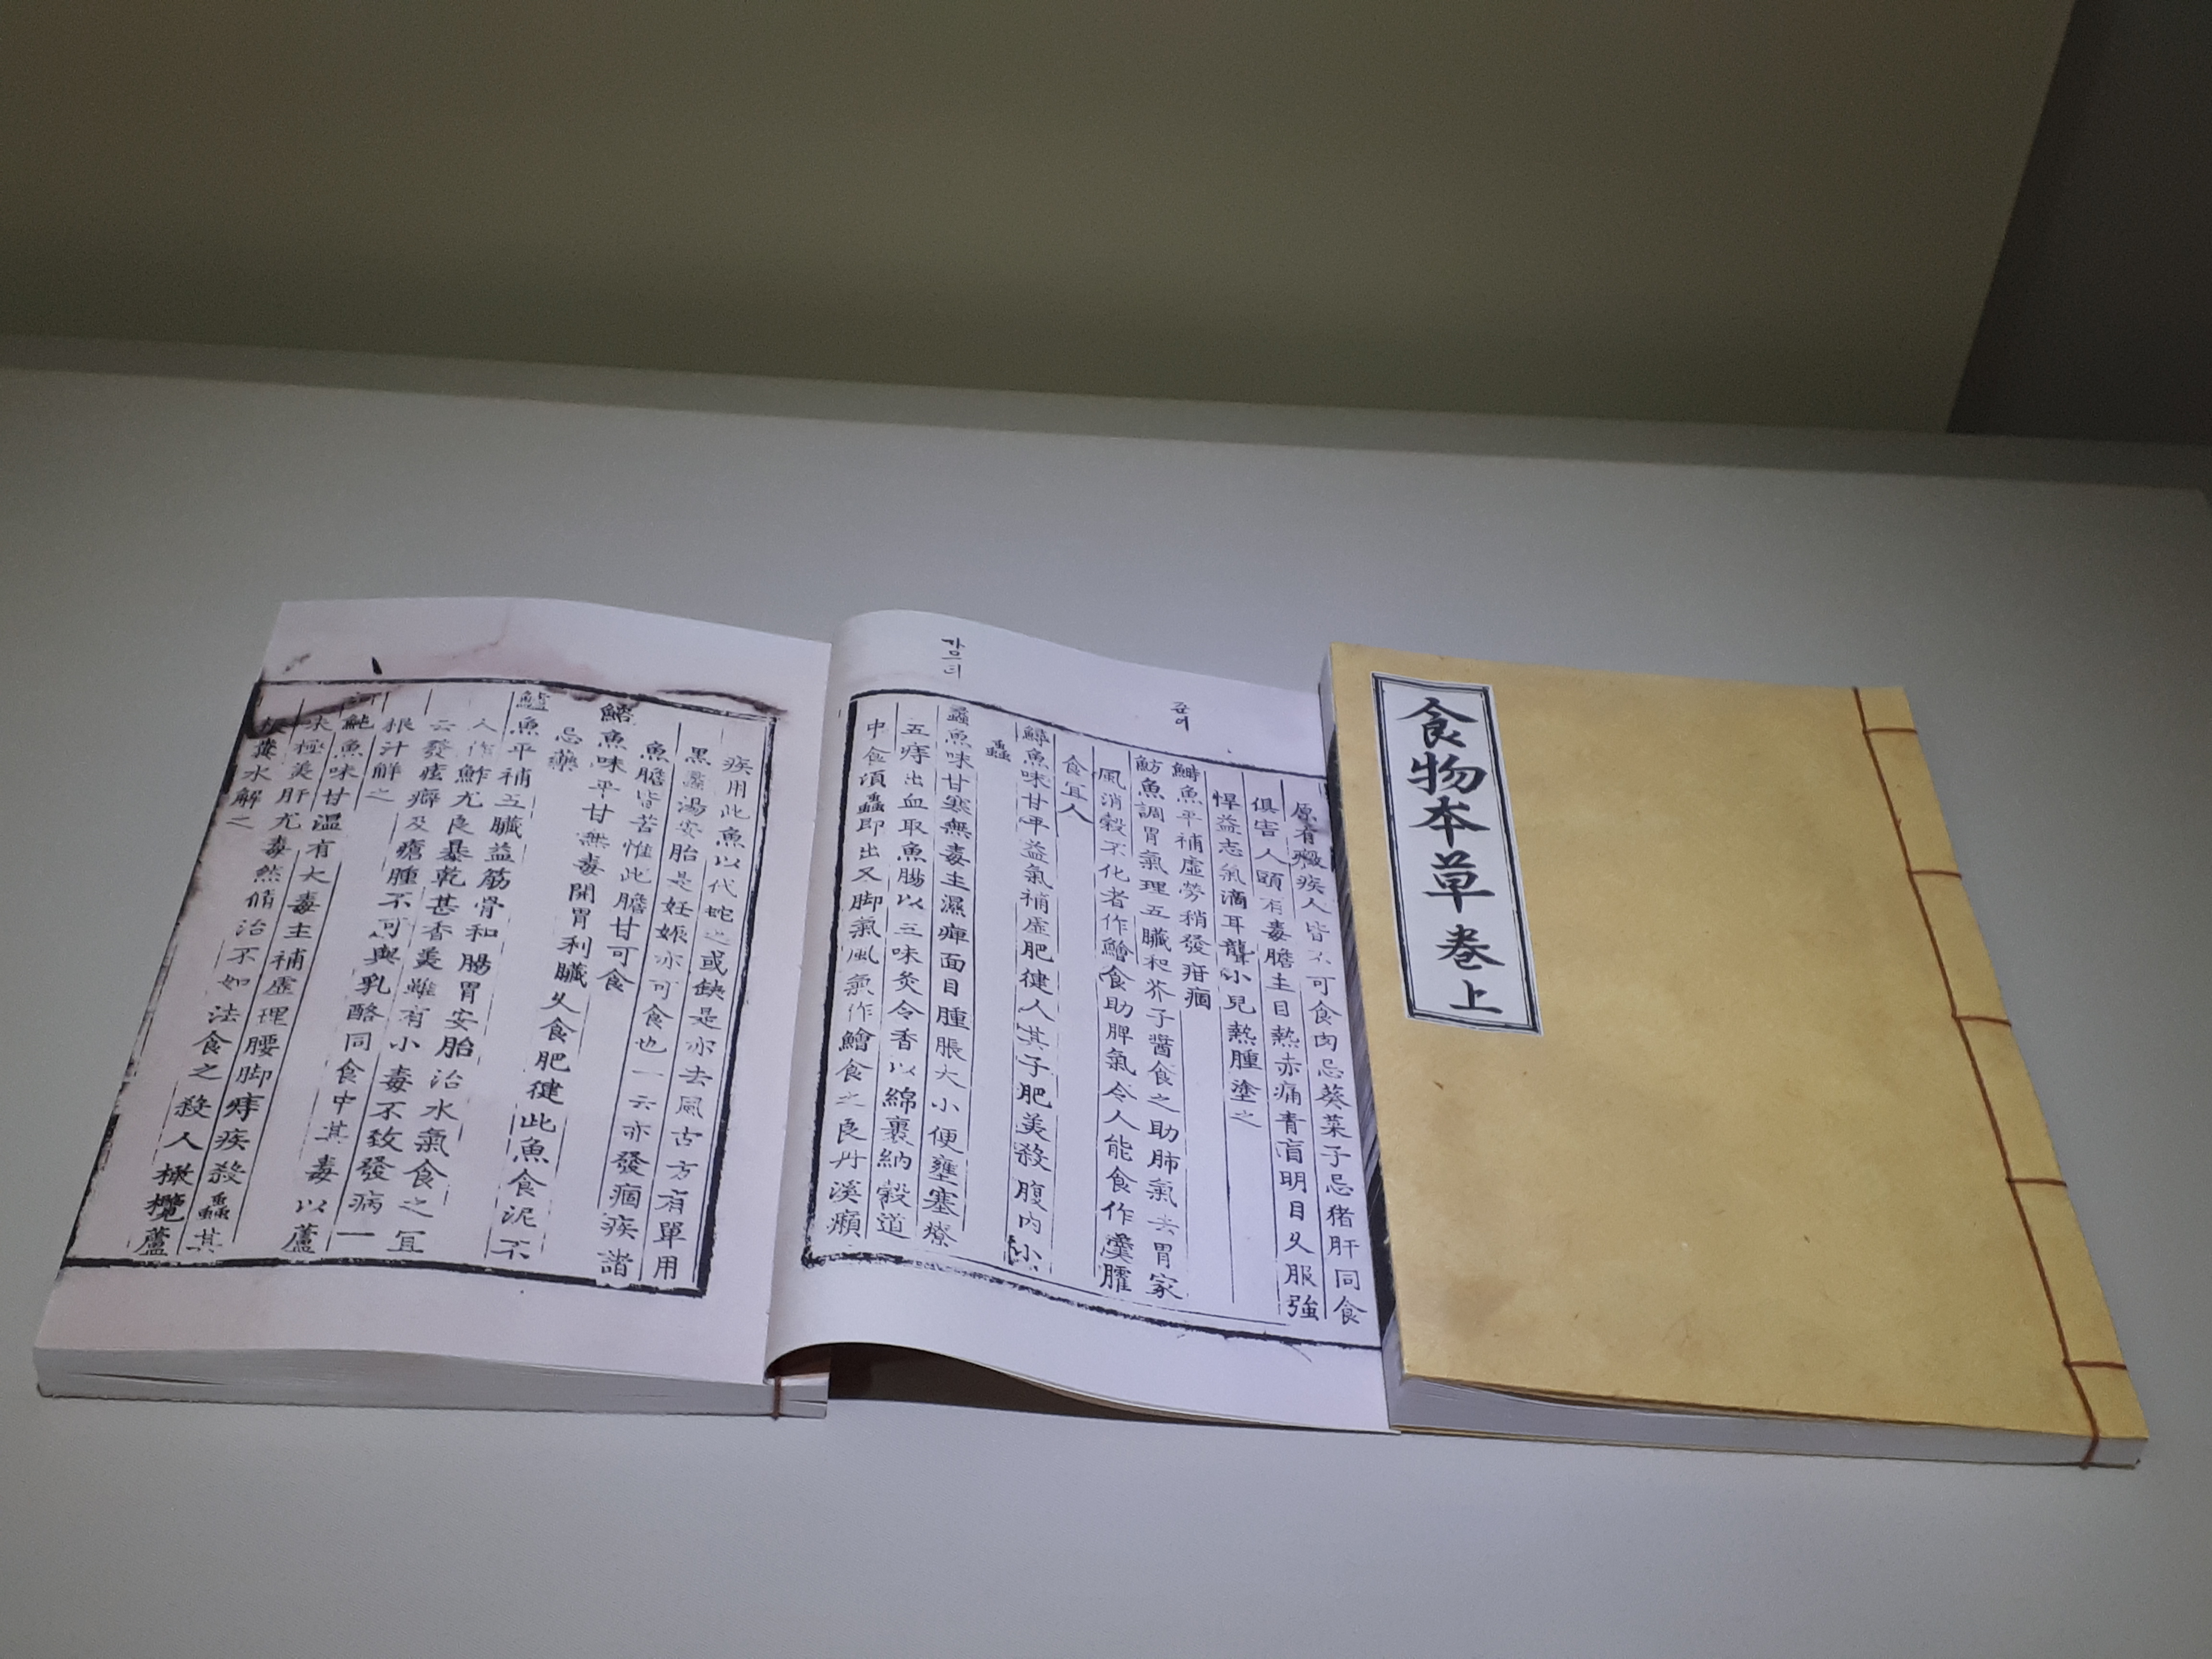 食物本草 卷上
준어
가믈티
原有瘢疾人皆不可食肉忌葵菜子忌猪肝同食
俱害人頤有毒膽主目熱赤痛青盲明目久服強
悍益志氣滴耳聾小兒熱腫塗之
鰣魚平補虛勞稍發疳痼
魴魚調胃氣理五臟和芥子醬食之助肺氣去胃家
風消穀不化者作鱠食助脾氣令人能食作羹臛
食宜人
鱘魚味甘平益氣補虛肥健人其子肥美殺腹內小
蟲
蠡魚味甘寒無毒主濕痺面目腫脹大小便壅塞療
五痔出血取魚腸以三味炙令香以綿裹納穀道
中食頃蟲即出又脚氣風氣作鱠食之良丹溪癩
疾用此魚以代蛇之或缺是亦去風古方有單用
黑蠡湯安胎是妊娠亦可食也一云亦發痼疾諸
魚膽皆苦惟此膽甘可食
魚味平甘無毒開胃利臟久食肥健此魚食泥不
忌藥
魚平補五臟益筋骨和腸胃安胎治水氣食之宜
人作鮓尤良暴乾甚香美雖有小毒不致發病一
云發痃癖及瘡腫不可與乳酪同食中其毒以蘆
根汁解之
河魨魚味甘溫有大毒主補虛理腰脚痔疾殺蟲其
味極美肝尤毒然脩治不如法食之殺人橄欖蘆
根糞水解之